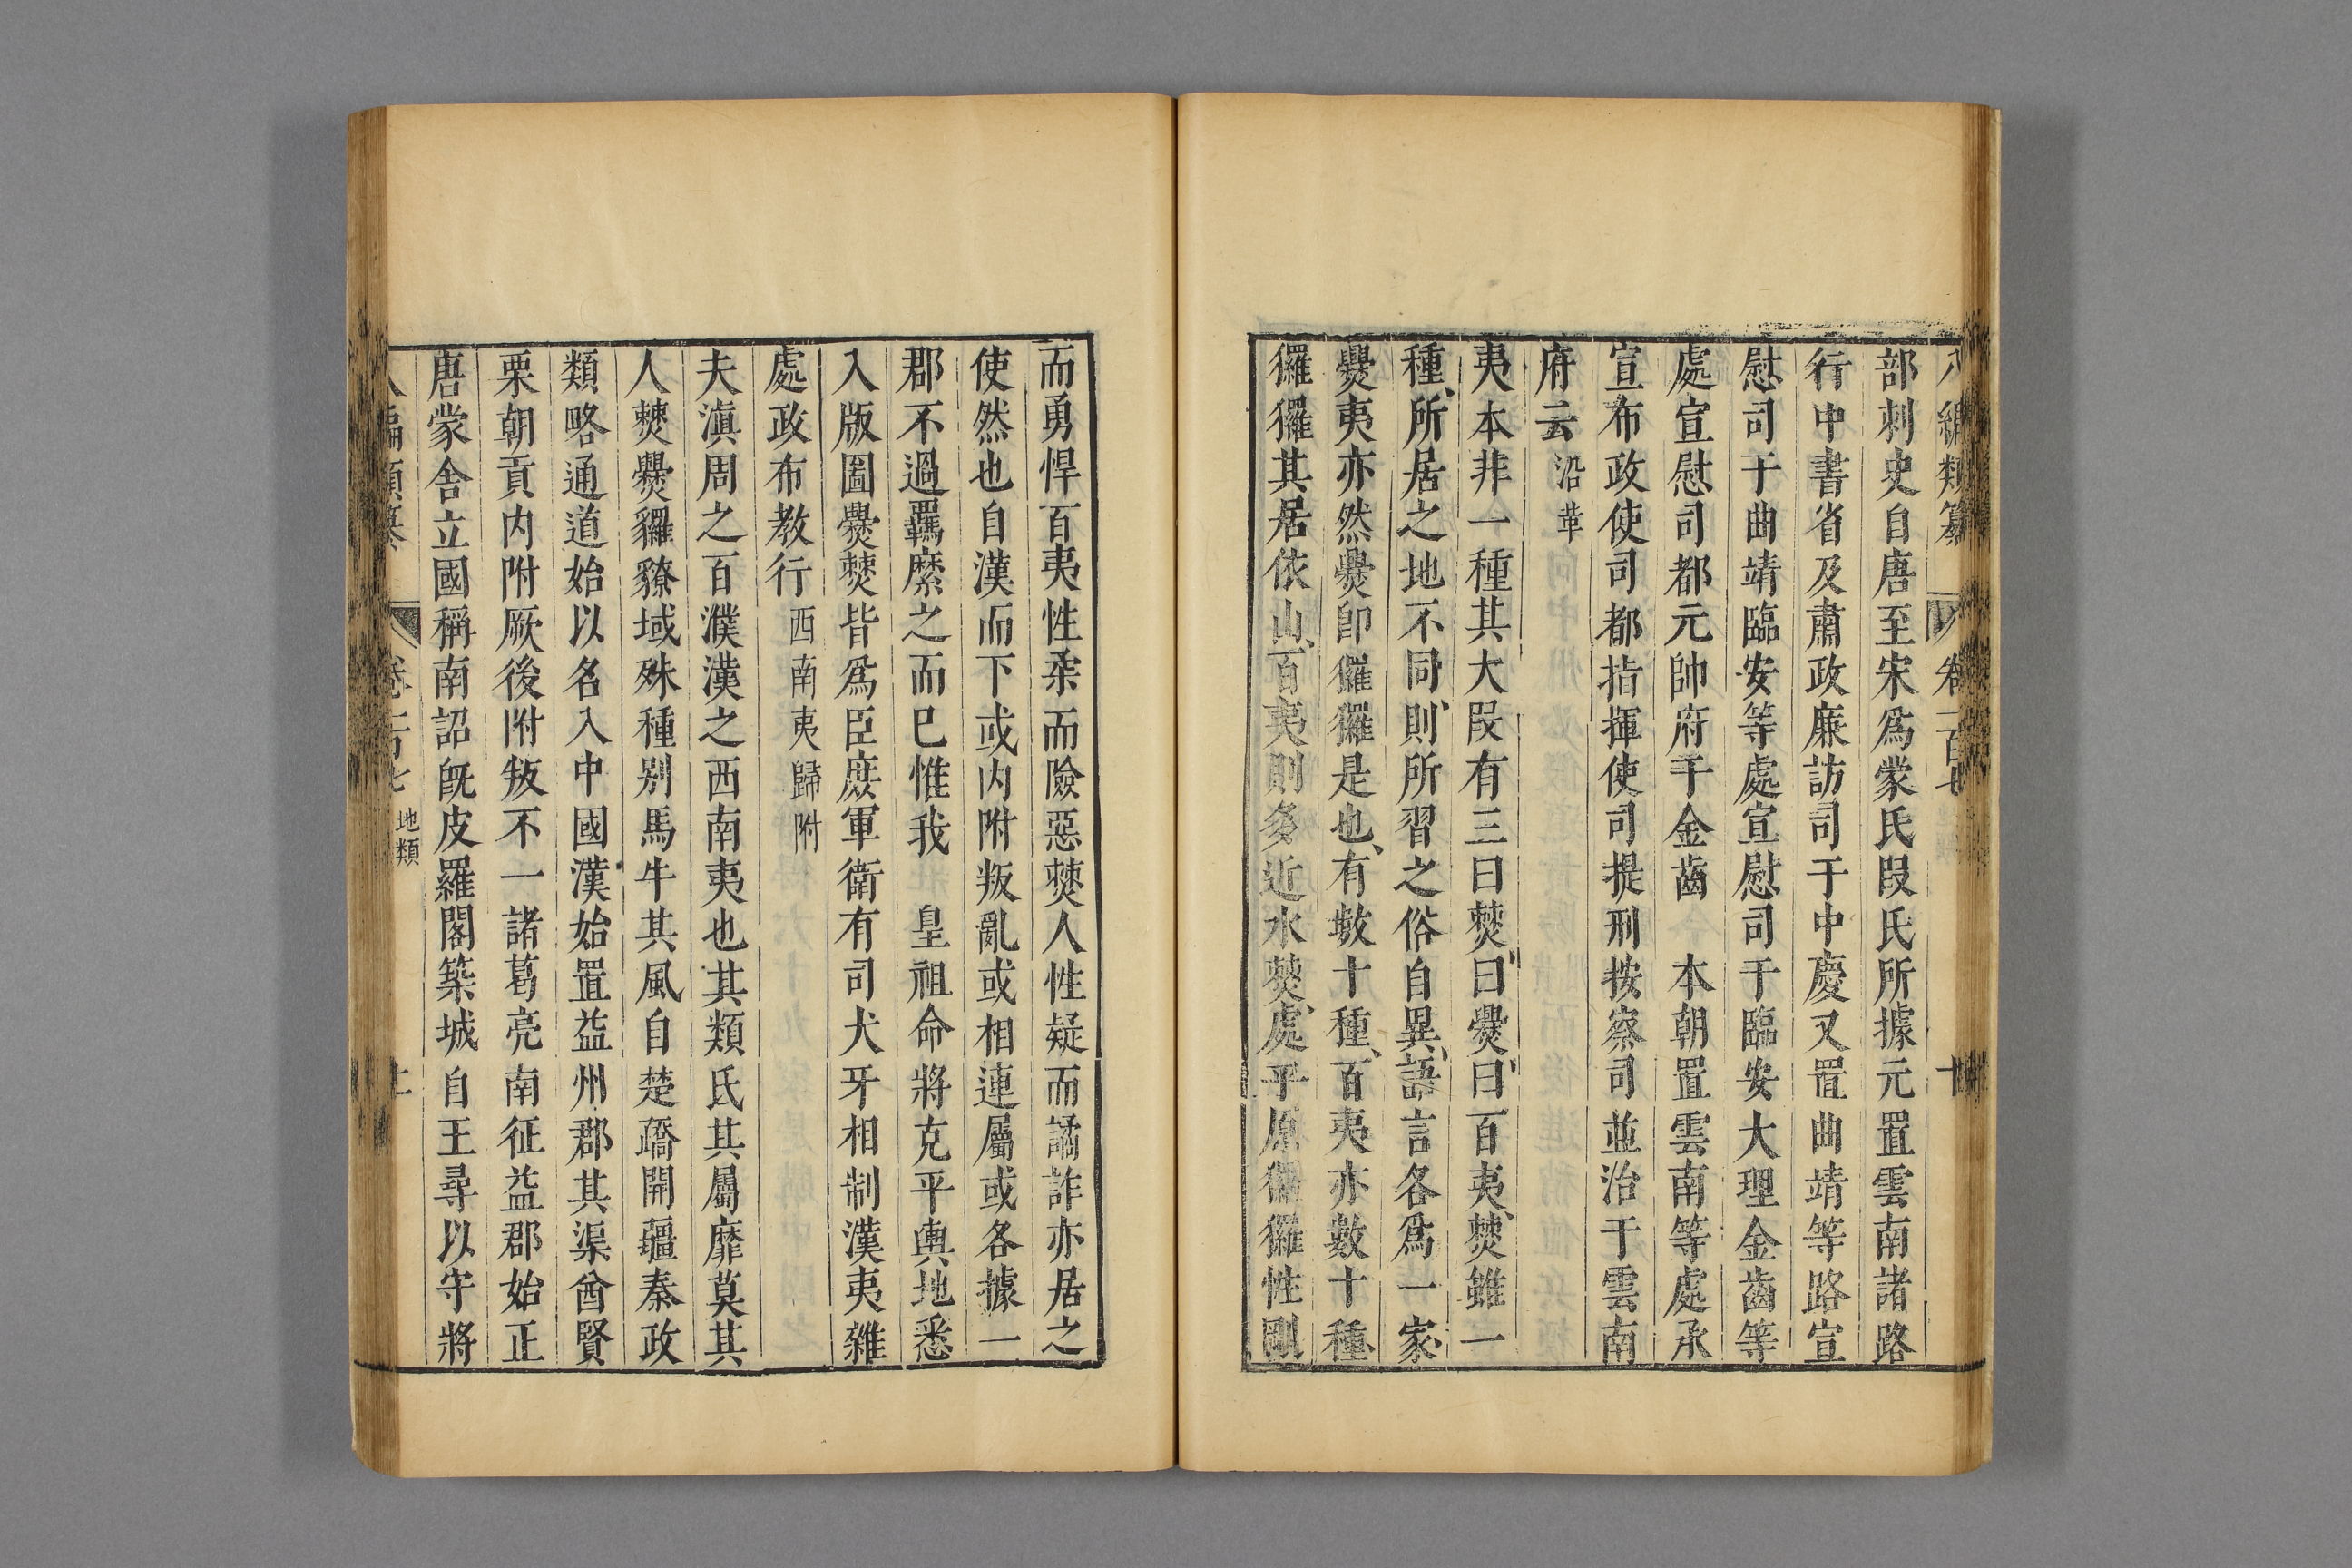 八編類纂 卷一百七 十
部刺史自唐至宋爲蒙氏段氏所據元置雲南諸路
行中書省及肅政廉訪司于中慶又置曲靖等路宣
慰司于曲靖臨安等處宣慰司于臨安大理金齒等
處宣慰司都元帥府于金齒 本朝置雲南等處承
宣布政使司都指揮使司提刑按察司並治于雲南
府云沿革
夷本非一種其大段有三曰僰曰爨曰百夷僰雖一
種所居之地不同則所習之俗自異語言各爲一家
爨夷亦然爨卽玀玀是也有數十種百夷亦數十種
玀玀其居依山百夷則多近水僰處平原玀玀性剛
而勇悍百夷性柔而險惡僰人性疑而譎詐亦居之
使然也自漢而下或内附叛亂或相連屬或各據一
郡不過羈縻之而已惟我 皇祖命將克平輿地悉
入版圖爨僰皆爲臣庶軍衛有司犬牙相制漢夷雜
處政布教行西南夷歸附
夫滇周之百濮漢之西南夷也其類氐其屬靡莫其
人僰爨玀獠域殊種别馬牛其風自楚蹻開疆秦政
類略通道始以名入中國漢始置益州郡其渠酋賢
栗朝貢内附厥後附叛不一諸葛亮南征益郡始正
唐蒙舍立國稱南詔旣皮羅閣築城自王尋以守將
八編類纂 卷一百七 地類 十一